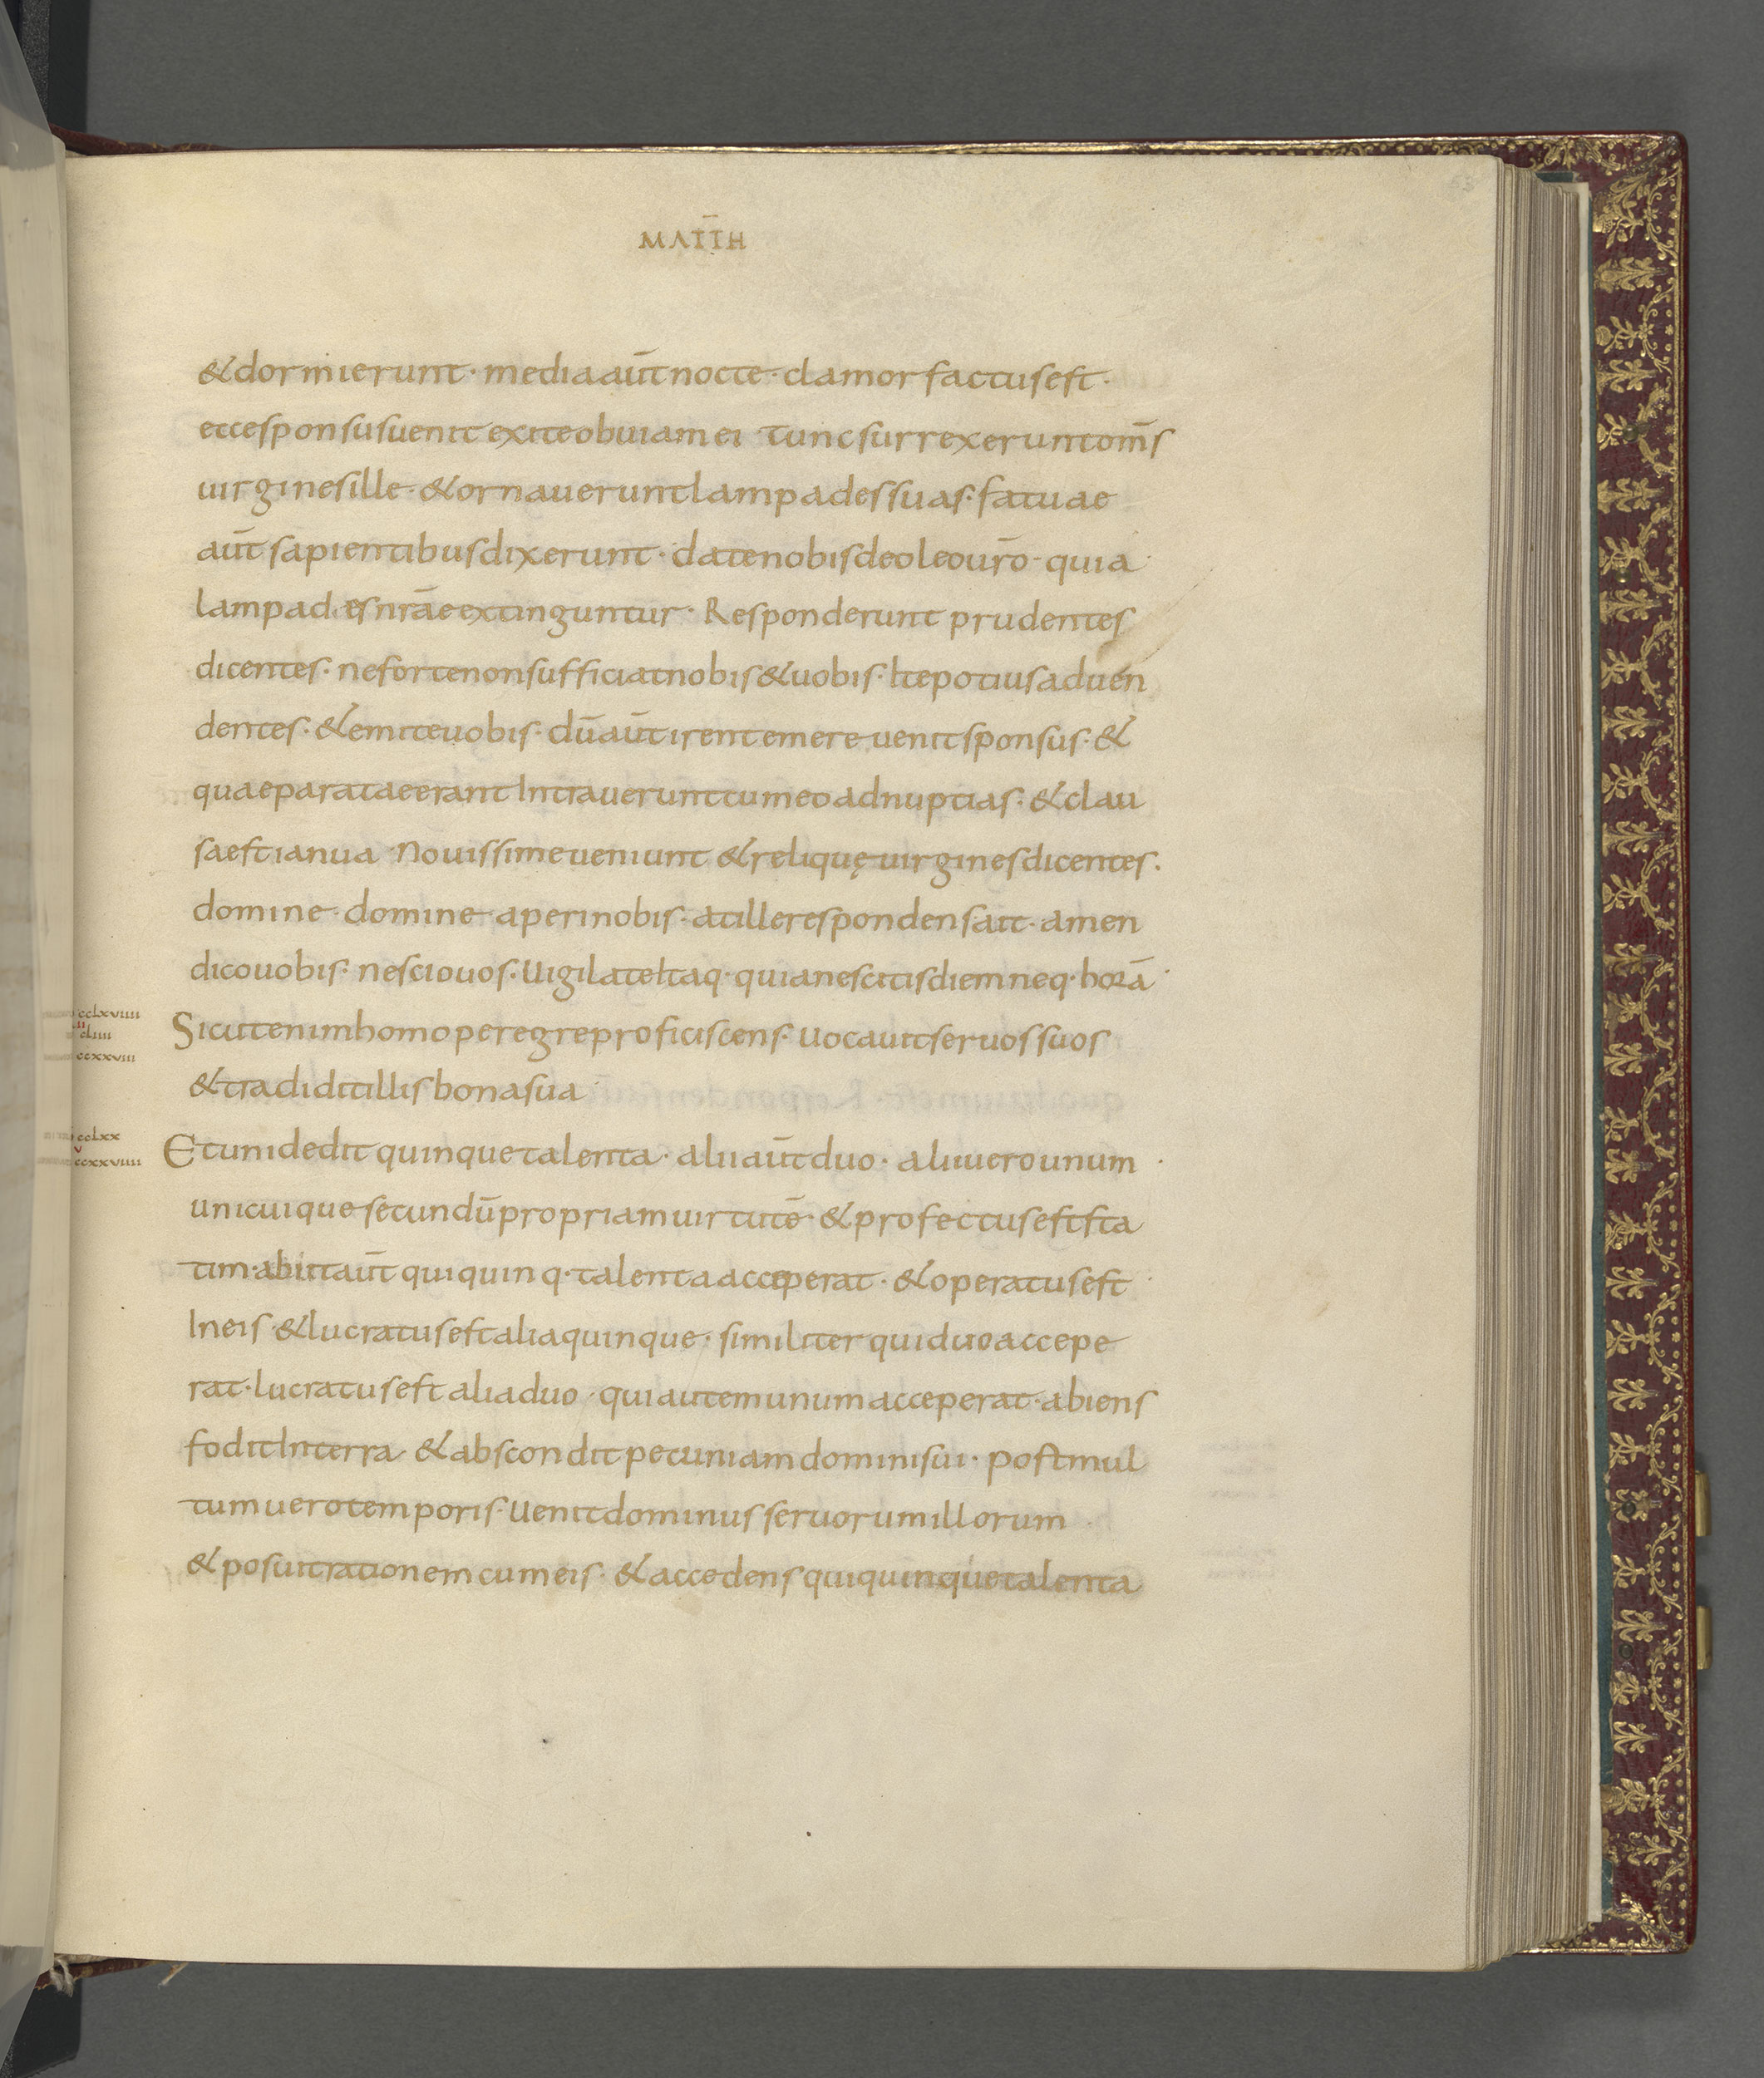 53
MATTH̄
&dormierunt· media aūt nocte· clamor factus est·
ecce sponsus uenit exite obuiam ei· Tunc surrexerunt om̄s
uirgines ille· &ornauerunt lampades suas· fatuae
aūt sapientibus dixerunt· date nobis de oleo ur̄o· quia
lampades nrāe extinguntur· Responderunt prudentes
dicentes· ne forte non sufficiat nobis &uobis· Ite potius ad uen
dentes· &emite uobis· dū aūt irent emere uenit sponsus· &
quae paratae erant Intrauerunt cum eo ad nuptias· &clau
sa est ianua· Nouissime ueniunt &reliquę uirgines dicentes·
domine domine aperi nobis· at ille respondens ait· amen
dico uobis· nescio uos· Uigilate Itaq· quia nescitis diem neq· horā·
cclxviiii
ii
cliiii
ccxxviii
Sicut enim homo peregre proficiscens· uocauit seruos suos
&tradidit illis bona sua·
cclxx
v
ccxxviiii
Et uni dedit quinque talenta· alii aūt duo· alii uero unum·
unicuique secundū propriam uirtutē· &profectus est sta
tim· abiit aūt qui quinq· talenta acceperat· &operatus est·
In eis· &lucratus est alia quinque· similiter qui duo accepe
rat· lucratus est alia duo· qui autem unum acceperat· abiens
fodit In terra &abscondit pecuniam domini sui· post mul
tum uero temporis· Uenit dominus seruorum illorum
&posuit rationem cum eis· &accedens qui quinque talenta